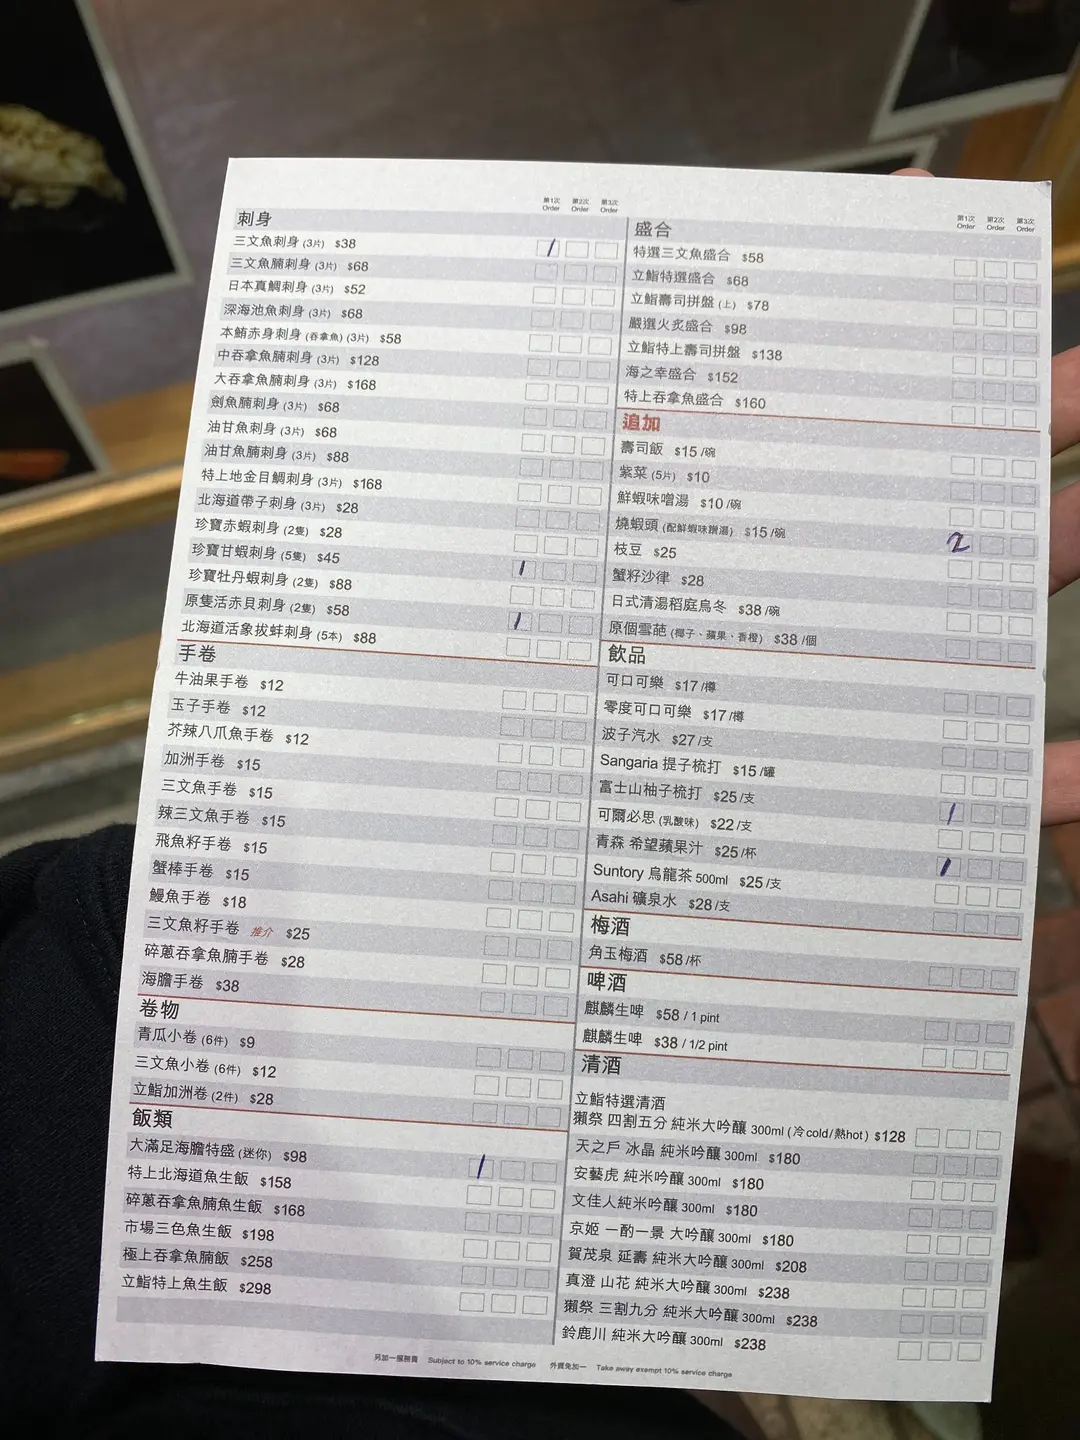 第1次 Order 第2次 Order 第3次 Order
刺身
三文魚刺身 (3片) $38 /
三文魚腩刺身 (3片) $68
日本真鯛刺身 (3片) $52
深海池魚刺身 (3片) $68
本鮪赤身刺身 (吞拿魚) (3片) $58
中吞拿魚腩刺身 (3片) $128
大吞拿魚腩刺身 (3片) $168
劍魚腩刺身 (3片) $68
油甘魚刺身 (3片) $68
油甘魚腩刺身 (3片) $88
特上地金目鯛刺身 (3片) $168
北海道帶子刺身 (3片) $28
珍寶赤蝦刺身 (2隻) $28
珍寶甘蝦刺身 (5隻) $45
珍寶牡丹蝦刺身 (2隻) $88 1
原隻活赤貝刺身 (2隻) $58
北海道活象拔蚌刺身 (5本) $88 1
手卷
牛油果手卷 $12
玉子手卷 $12
芥辣八爪魚手卷 $12
加洲手卷 $15
三文魚手卷 $15
辣三文魚手卷 $15
飛魚籽手卷 $15
蟹棒手卷 $15
鰻魚手卷 $18
三文魚籽手卷 推介 $25
碎蔥吞拿魚腩手卷 $28
海膽手卷 $38
卷物
青瓜小卷 (6件) $9
三文魚小卷 (6件) $12
立鮨加洲卷 (2件) $28
飯類
大滿足海膽特盛 (迷你) $98 1
特上北海道魚生飯 $158
碎蔥吞拿魚腩魚生飯 $168
市場三色魚生飯 $198
極上吞拿魚腩飯 $258
立鮨特上魚生飯 $298
第1次 Order 第2次 Order 第3次 Order
盛合
特選三文魚盛合 $58
立鮨特選盛合 $68
立鮨壽司拼盤 (上) $78
嚴選火炙盛合 $98
立鮨特上壽司拼盤 $138
海之幸盛合 $152
特上吞拿魚盛合 $160
追加
壽司飯 $15 /碗
紫菜 (5片) $10
鮮蝦味噌湯 $10 /碗
燒蝦頭 (配鮮蝦味噌湯) $15 /碗 2
枝豆 $25
蟹籽沙律 $28
日式清湯稻庭烏冬 $38 /碗
原個雪葩 (椰子、蘋果、香橙) $38 /個
飲品
可口可樂 $17 /樽
零度可口可樂 $17 /樽
波子汽水 $27 /支
Sangaria 提子梳打 $15 /罐
富士山柚子梳打 $25 /支 /
可爾必思 (乳酸味) $22 /支
青森 希望蘋果汁 $25 /杯 /
Suntory 烏龍茶 500ml $25 /支
Asahi 礦泉水 $28 /支
梅酒
角玉梅酒 $58 /杯
啤酒
麒麟生啤 $58 / 1 pint
麒麟生啤 $38 / 1/2 pint
清酒
立鮨特選清酒
獺祭 四割五分 純米大吟釀 300ml (冷cold/熱hot) $128
天之戶 冰晶 純米吟釀 300ml $180
安藝虎 純米吟釀 300ml $180
文佳人純米吟釀 300ml $180
京姬 一酌一景 大吟釀 300ml $180
賀茂泉 延壽 純米大吟釀 300ml $208
真澄 山花 純米大吟釀 300ml $238
獺祭 三割九分 純米大吟釀 300ml $238
鈴鹿川 純米大吟釀 300ml $238
另加一服務費 Subject to 10% service charge 外賣免加一 Take away exempt 10% service charge